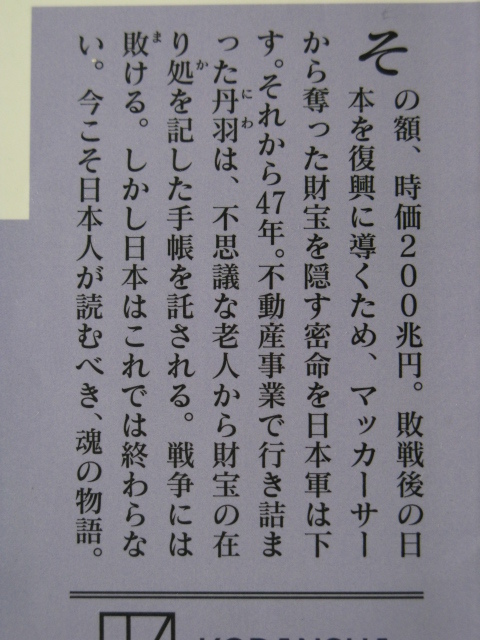 その額、時価200兆円。敗戦後の日
本を復興に導くため、マッカーサー
から奪った財宝を隠す密命を日本軍は下
す。それから47年。不動産事業で行き詰ま
った丹羽は、不思議な老人から財宝の在
り処を記した手帳を託される。戦争には
敗ける。しかし日本はこれでは終わらな
い。今こそ日本人が読むべき、魂の物語。
にわ
か
ま